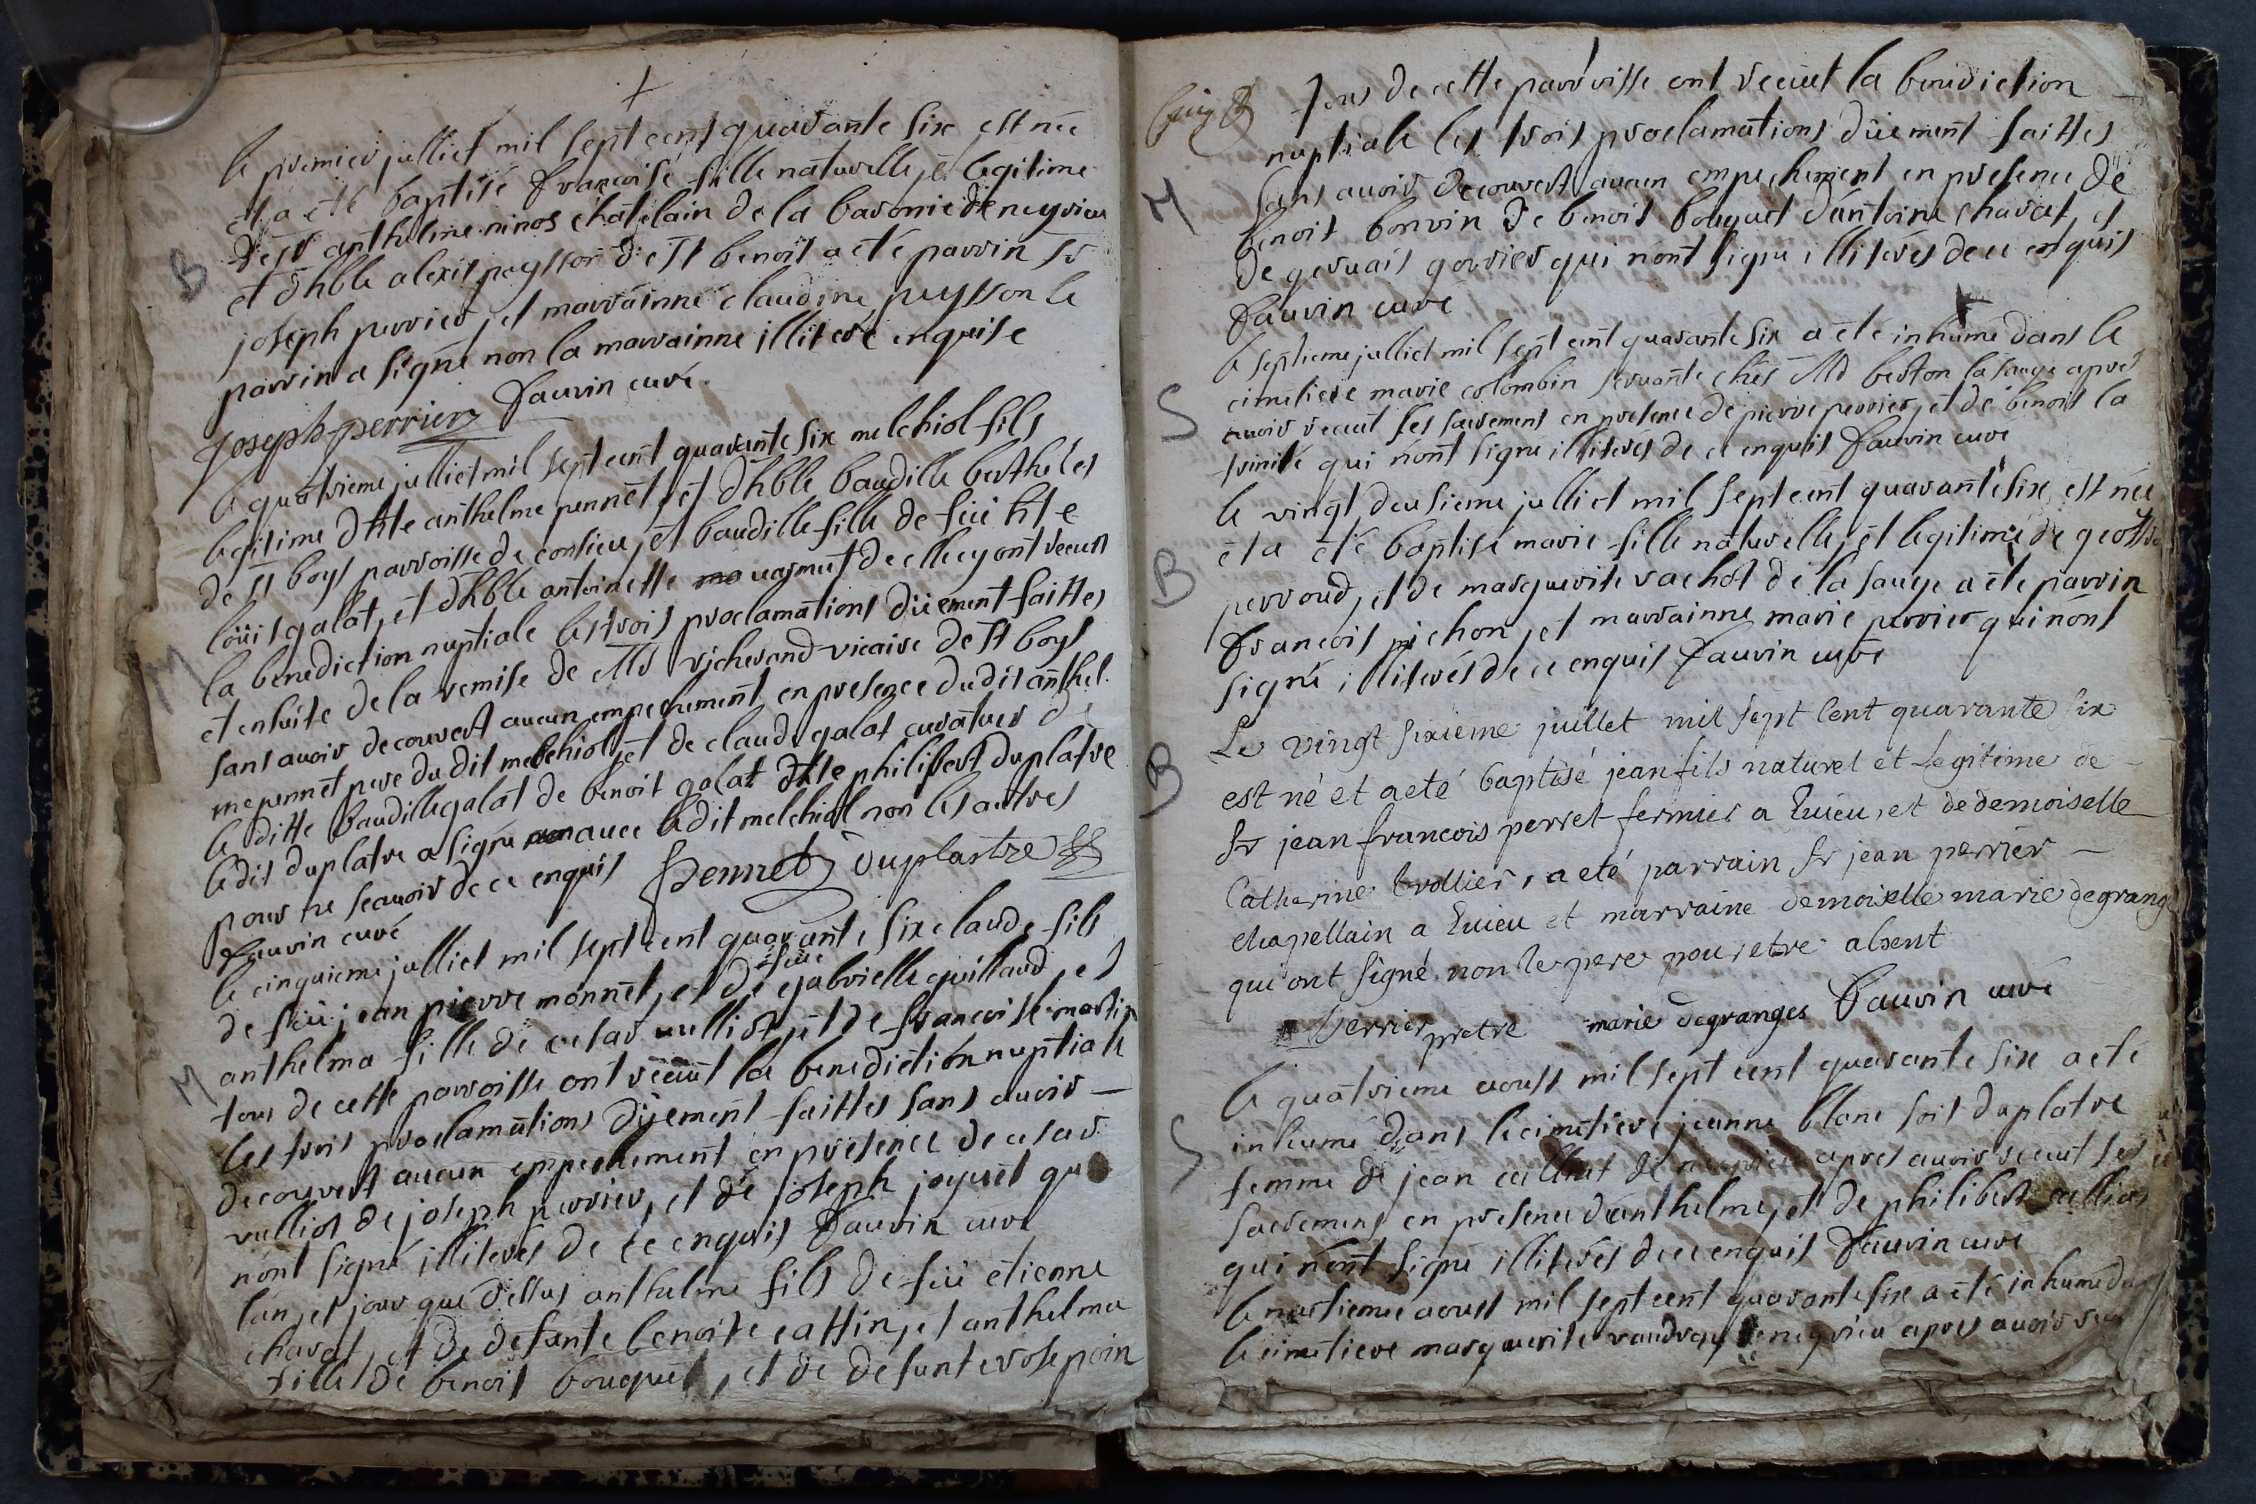 le premier julliet mil sept cent quarante six est née
et a été baptisé francoise fille naturelle, et legitime
de sr anthelme ninos châtelain de la baronie de neyrieu
B
et d'hble alexis peysson de st benoit a été parrin sr
joseph perrier, et marrainne claudine peysson le
parrin a signé non la marrainne illiteré enquise
Joseph perrier fauvin curé.
le quatrieme julliet mil sept cent quarante six melchiol fils
legitime d'hte anthelme pennet, et d'hble baudille berthelet
de st boys parroisse de conlieu, et baudille fille de feü hte
loüis galat, et d'hble antoinette uarmet de ellecy ont receut
M
la benediction nuptiale les trois proclamations düement faittes
et ensuite de la remise de Mr richerand vicaire de st boys
sans avoir decouvert aucun empechement en presence dudit anthel
me pennet pere du dit melchiol, et de claude galat curateur de
la ditte baudille galat de benoit galat d'hte philibert duplatre
ledit duplatre a signé avec ledit melchiol non les autres
pour ne scavoir de ce enquis Pennet duplastre
fauvin curé
le cinquieme julliet mil sept cent quarante six claude fils
de feü jean pierre monnet, et de feüe gabrielle guillaud, et
anthelma fille de cesar vulliot, et de francoise martin
M
tous de cette parroisse ont receut la benediction nuptiale
les trois proclamations düement faittes sans avoir
decouvert aucun empechement en presence de cesar
vulliot de joseph perrier, et de joseph joyuet qui
n'ont signé illiterés de ce enquis fauvin curé
l'an, et jour que dessus anthelme fils de feü etienne
chavat, et de defunte benoite cattin, et anthelma
fille de benoit bouquet, et de defunte rose poin
tous de cette parroisse ont receut la benediction
nuptiale les trois proclamations düement faittes
M
sans avoir decouvert aucun empechement en presence de
benoit bonvin de benoit bouquet d'antoine chavat, et
de gervais gorrier qui n'ont signé illiterés de ce enquis
fauvin curé
le septieme julliet mil sept cent quarante six a été inhumé dans le
S
cimetiere marie colombin servante chés Md berton la sauge aprés
avoir receut les sacrement en presence de pierre perrier, et de benoit la
trinité qui n'ont signé illiterés de ce enquis fauvin curé
le vingt deusieme julliet mil sept cent quarante six, est née
et a été baptisé marie fille naturelle, et legitime de geoffre
B
perroud, et de marguerite vachot de la sauge a été parrin
francois pichon, et marrainne marie perrier qui n'ont
signé illiterés de ce enquis fauvin curé
Le vingt sixieme juillet mil sept cent quarante six
B
est né et a eté baptisé jean fils naturel et legitime de
sr jean francois perret fermier a Luieu, et de demoiselle
Catherine trollier, a eté parrain sr jean perrier
chapellain a Luieu et marraine demoiselle marie degrange
qui ont signé non le pere pour etre absent
Perrier pretre marie degranges fauvin curé
le quatrieme aoust mil sept cent quarante six a eté
inhumé dans le cimetiere jeanne blanc soit duplatre
S
femme de jean cullliat de neyrieu apres avoir receut ses
sacremens en presence d'anthelme, et de philibert cullliat
qui n'ont signé illiterés de ce enquis fauvin curé
le aoust mil sept cent quarante six a été inhumé dans
le cimetiere marguerite vaudray de neyrieu apres avoir receu